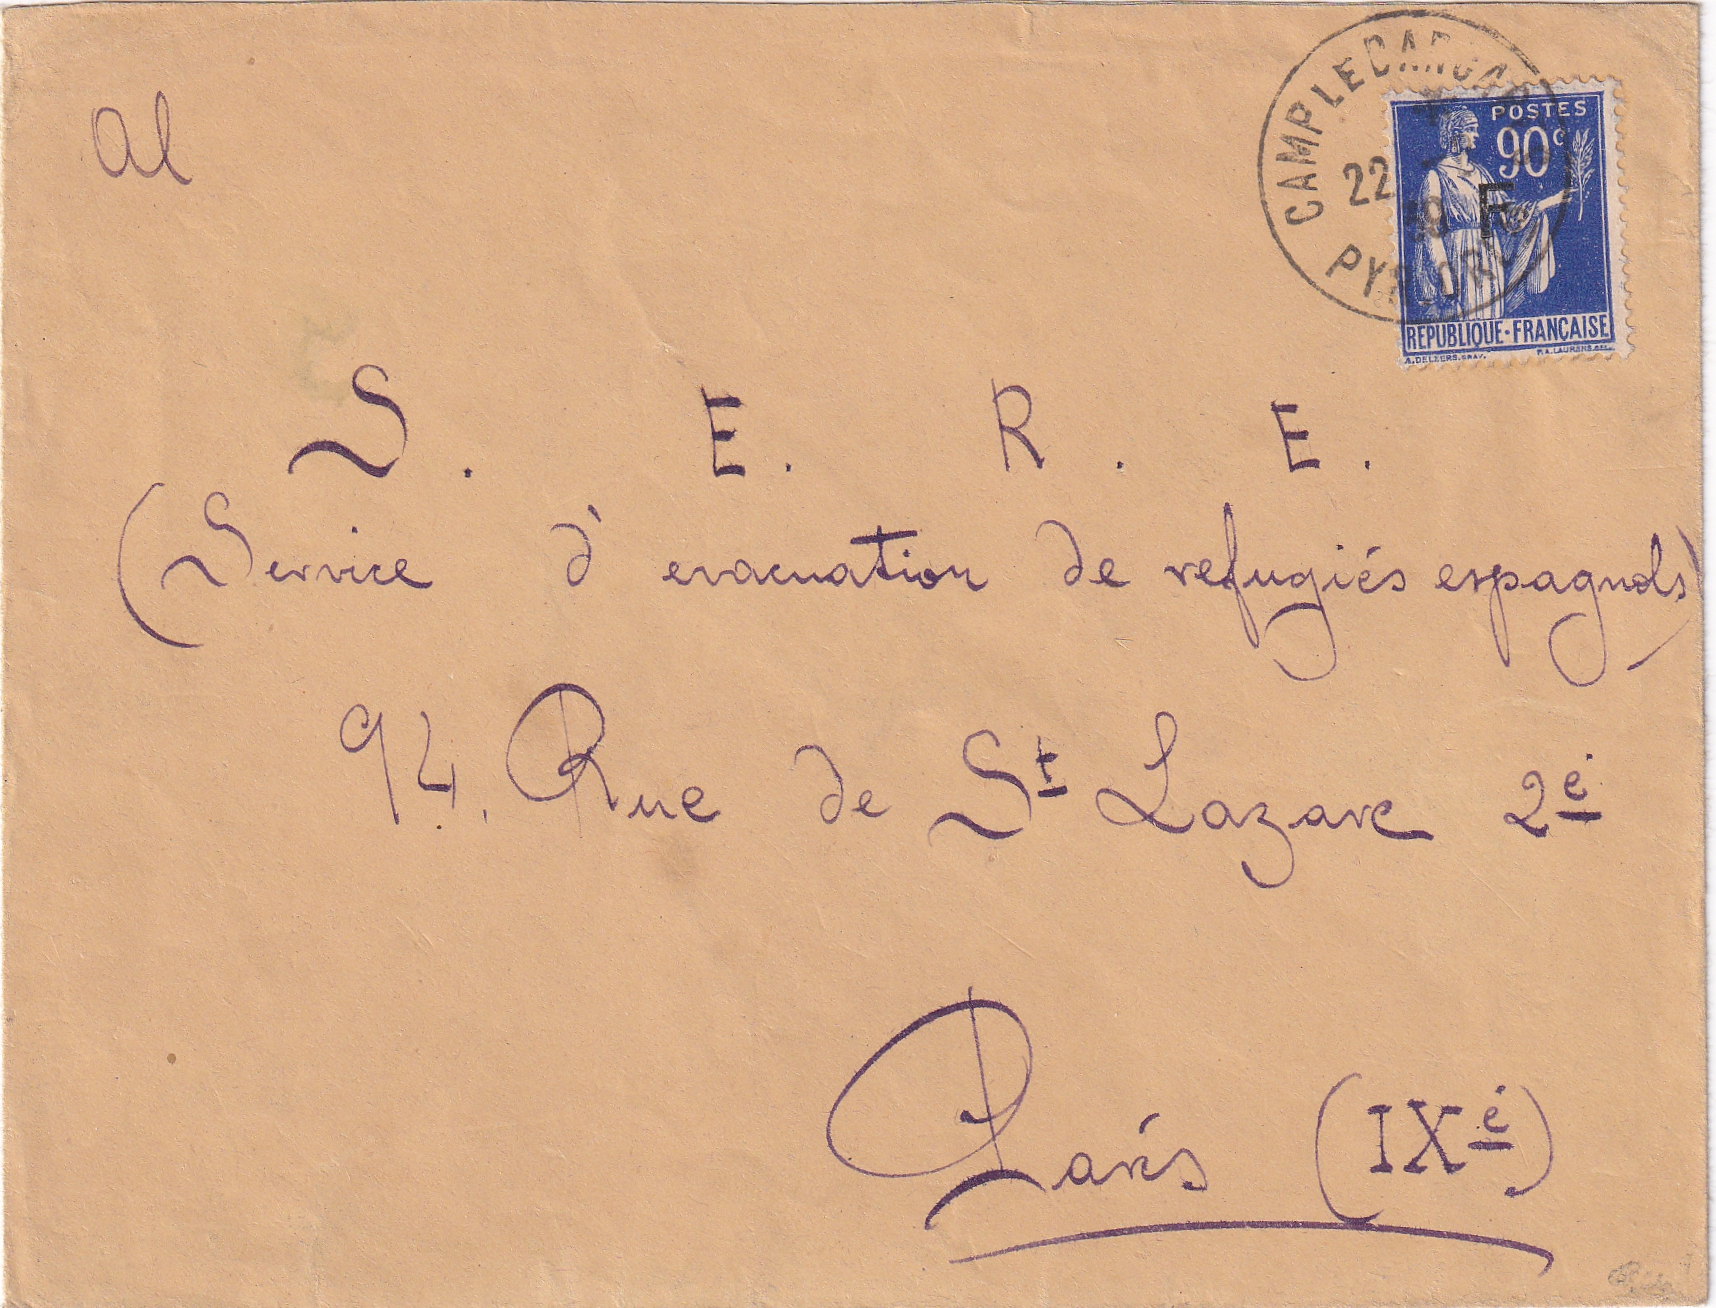 CAMP LE BARCARES
22
PYR. OR.
POSTES
90c
F
REPUBLIQUE-FRANÇAISE
A.DELZERS.GRAV.
Al
S. E. R. E.
(Service d'evacuation de refugiés espagnols)
94. Rue de St Lazare 2é
Parés (IXé)